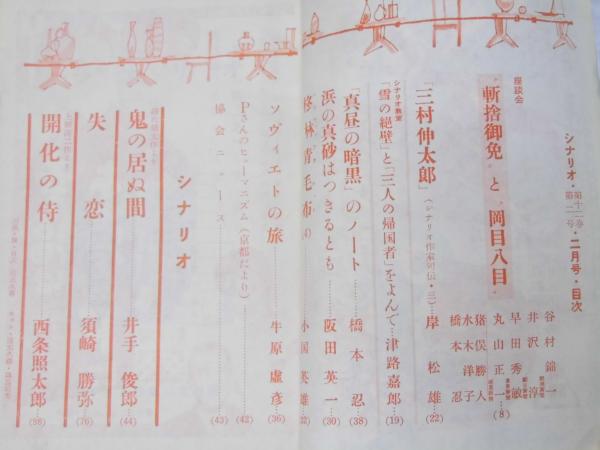 シナリオ・第十二巻第二号・二月号・目次
座談会
"斬捨御免"と"岡目八目"
谷村錦一
井沢淳
早田秀敏
丸山正一
猪俣勝人
水木洋子
橋本忍
(8)
「三村伸太郎」(シナリオ作家列伝・三)…岸松雄(22)
シナリオ教室
「雪の絶壁」と「三人の帰国者」をよんで…津路嘉郎(19)
「真昼の暗黒」のノート…橋本忍(38)
浜の真砂はつきるとも…阪田英一(30)
青毛布…小国英雄
ソヴィエトの旅…牛原虚彦(36)
Pさんのヒューマニズム(京都だより)…(42)
協会ニュース…(43)
シナリオ
鬼の居ぬ間…井手俊郎(44)
失恋…須崎勝弥(76)
開化の侍…西条照太郎(98)